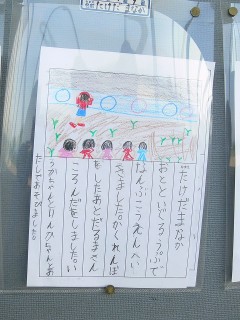 だけだまなか
おとといぐろうぷで
なんぶこうえんへい
きました。かくれんぼ
をしたあとだるまさん
ころんだをしました。い
ろかちゃんとりんかちゃんとあ
たしであそびました。